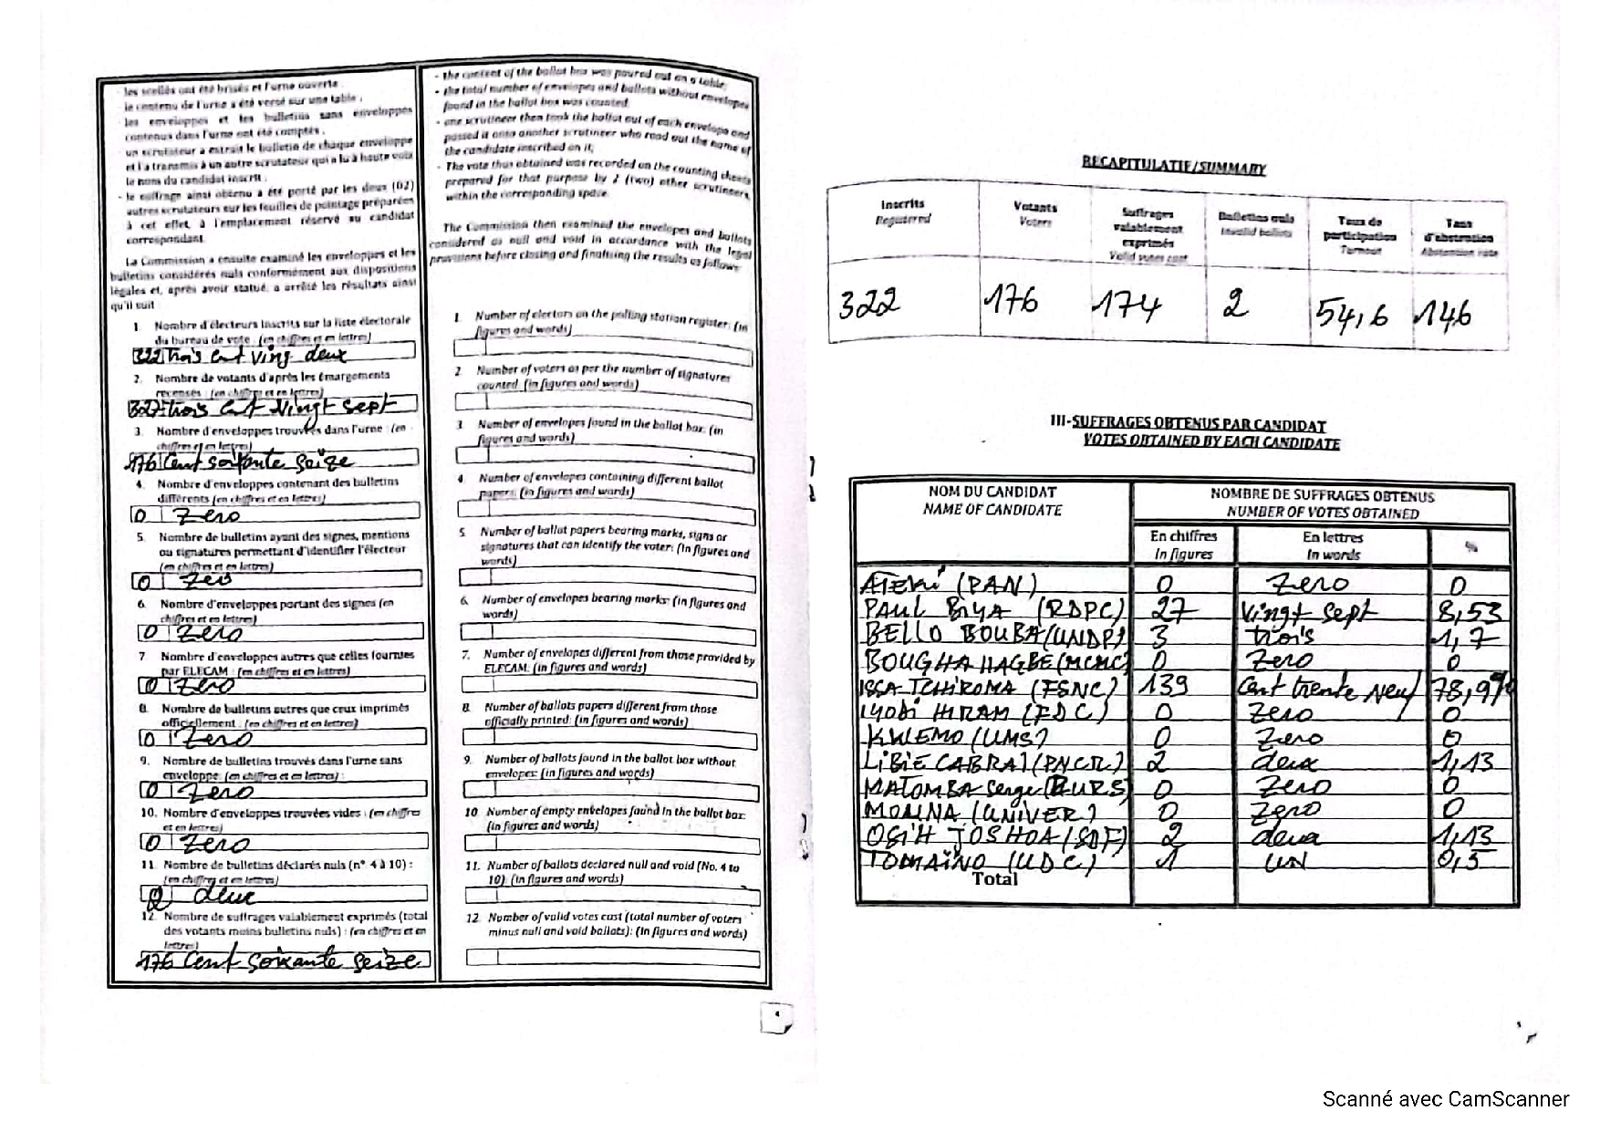 les scellés ont été brisés et l'urne ouverte ;
le contenu de l'urne a été versé sur une table ;
les enveloppes et les bulletins sans enveloppes
contenus dans l'urne ont été comptés ;
un scrutateur a extrait le bulletin de chaque enveloppe
et l'a transmis à un autre scrutateur qui a lu à haute voix
le nom du candidat inscrit ;
- le suffrage ainsi obtenu a été porté par les deux (02)
autres scrutateurs sur les feuilles de pointage préparées
à cet effet, à l'emplacement réservé au candidat
correspondant.
La Commission a ensuite examiné les enveloppes et les
bulletins considérés nuls conformément aux dispositions
légales et, après avoir statué, a arrêté les résultats ainsi
qu'il suit
1. Nombre d'électeurs inscrits sur la liste électorale
du bureau de vote : (en chiffres et en lettres)
322 trois cent ving deux
2. Nombre de votants d'après les émargements
recensés : (en chiffres et en lettres)
327 trois cent vingt sept
3. Nombre d'enveloppes trouvées dans l'urne : (en
chiffres et en lettres)
176 Cent soixante seize
4. Nombre d'enveloppes contenant des bulletins
différents (en chiffres et en lettres)
0 Zero
5. Nombre de bulletins ayant des signes, mentions
ou signatures permettant d'identifier l'électeur
(en chiffres et en lettres)
0 Zero
6. Nombre d'enveloppes portant des signes (en
chiffres et en lettres)
0 Zero
7 Nombre d'enveloppes autres que celles fournies
par ELECAM : (en chiffres et en lettres)
0 Zero
8. Nombre de bulletins autres que ceux imprimés
officiellement : (en chiffres et en lettres)
0 Zero
9. Nombre de bulletins trouvés dans l'urne sans
enveloppe: (en chiffres et en lettres) :
0 Zero
10. Nombre d'enveloppes trouvées vides : (en chiffres
et en lettres)
0 Zero
11. Nombre de bulletins déclarés nuls (n° 4 à 10) :
(en chiffres et en lettres)
2 deux
12. Nombre de suffrages valablement exprimés (total
des votants moins bulletins nuls) : (en chiffres et en
lettres)
176 Cent soixante seize
- the content of the ballot box was poured out on a table;
- the total number of envelopes and ballots without envelopes
found in the ballot box was counted;
- one scrutineer then took the ballot out of each envelope and
passed it onto another scrutineer who read out the name of
the candidate inscribed on it;
- The vote thus obtained was recorded on the counting sheets
prepared for that purpose by 2 (two) other scrutineers,
within the corresponding space.
The Commission then examined the envelopes and ballots
considered as null and void in accordance with the legal
provisions before closing and finalising the results as follows:
1 Number of electors on the polling station register: (in
figures and words)
2 Number of voters as per the number of signatures
counted: (in figures and words)
3 Number of envelopes found in the ballot box: (in
figures and words)
4 Number of envelopes containing different ballot
papers: (in figures and words)
5 Number of ballot papers bearing marks, signs or
signatures that can identify the voter: (in figures and
words)
6. Number of envelopes bearing marks: (in figures and
words)
7. Number of envelopes different from those provided by
ELECAM: (in figures and words)
8. Number of ballots papers different from those
officially printed: (in figures and words)
9. Number of ballots found in the ballot box without
envelopes: (in figures and words)
10 Number of empty envelopes found in the ballot box:
(in figures and words)
11. Number of ballots declared null and void (No. 4 to
10): (in figures and words)
12. Number of valid votes cast (total number of voters
minus null and void ballots): (in figures and words)
4
RECAPITULATIF/SUMMARY
Inscrits Registered
Votants Voters
Suffrages valablement exprimés Valid votes cast
Bulletins nuls Invalid ballots
Taux de participation Turnout
Taux d'abstention Abstention rate
322 176 174 2 54,6 146
III-SUFFRAGES OBTENUS PAR CANDIDAT
VOTES OBTAINED BY EACH CANDIDATE
NOM DU CANDIDAT
NAME OF CANDIDATE
NOMBRE DE SUFFRAGES OBTENUS
NUMBER OF VOTES OBTAINED
En chiffres
In figures
En lettres
In words
%
ATEKI (PAN) 0 Zero 0
PAUL BIYA (RDPC) 27 Vingt sept 8,53
BELLO BOUBA (UNDP) 3 trois 1,7
BOUGHA HAGBE (MCNC) 0 Zero 0
ISSA TCHIROMA (FSNC) 139 Cent trente Neuf 78,9%
IYODI HIRAM (FDC) 0 Zero 0
KWEMO (UMS) 0 Zero 0
LIBIE CABRAL (PNCR) 2 deux 1,13
MATOMBA Serge (PURS) 0 Zero 0
MOUNA (UNIVER) 0 Zero 0
OSIH JOSHOA (SDF) 2 deux 1,13
TOMAÏNO (UDC) 1 UN 0,5
Total
Scanné avec CamScanner